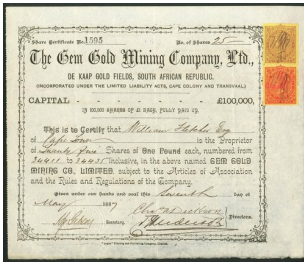 Share Certificate No. 1595 No. of Shares 25
The Gem Gold Mining Company, Ltd.,
DE KAAP GOLD FIELDS, SOUTH AFRICAN REPUBLIC.
(INCORPORATED UNDER THE LIMITED LIABILITY ACTS, CAPE COLONY AND TRANSVAAL.)
CAPITAL £100,000,
IN 100,000 SHARES OF £1 EACH, FULLY PAID UP.
This is to Certify that William Esq
of Cape Town is the Proprietor
of Twenty Five Shares of One Pound each, numbered from
34411 to 34435 inclusive, in the above named GEM GOLD
MINING CO. LIMITED, subject to the Articles of Association
and the Rules and Regulations of the Company.
Given under our hands and seal this Seventh day of
May 1887
Secretary. Directors.